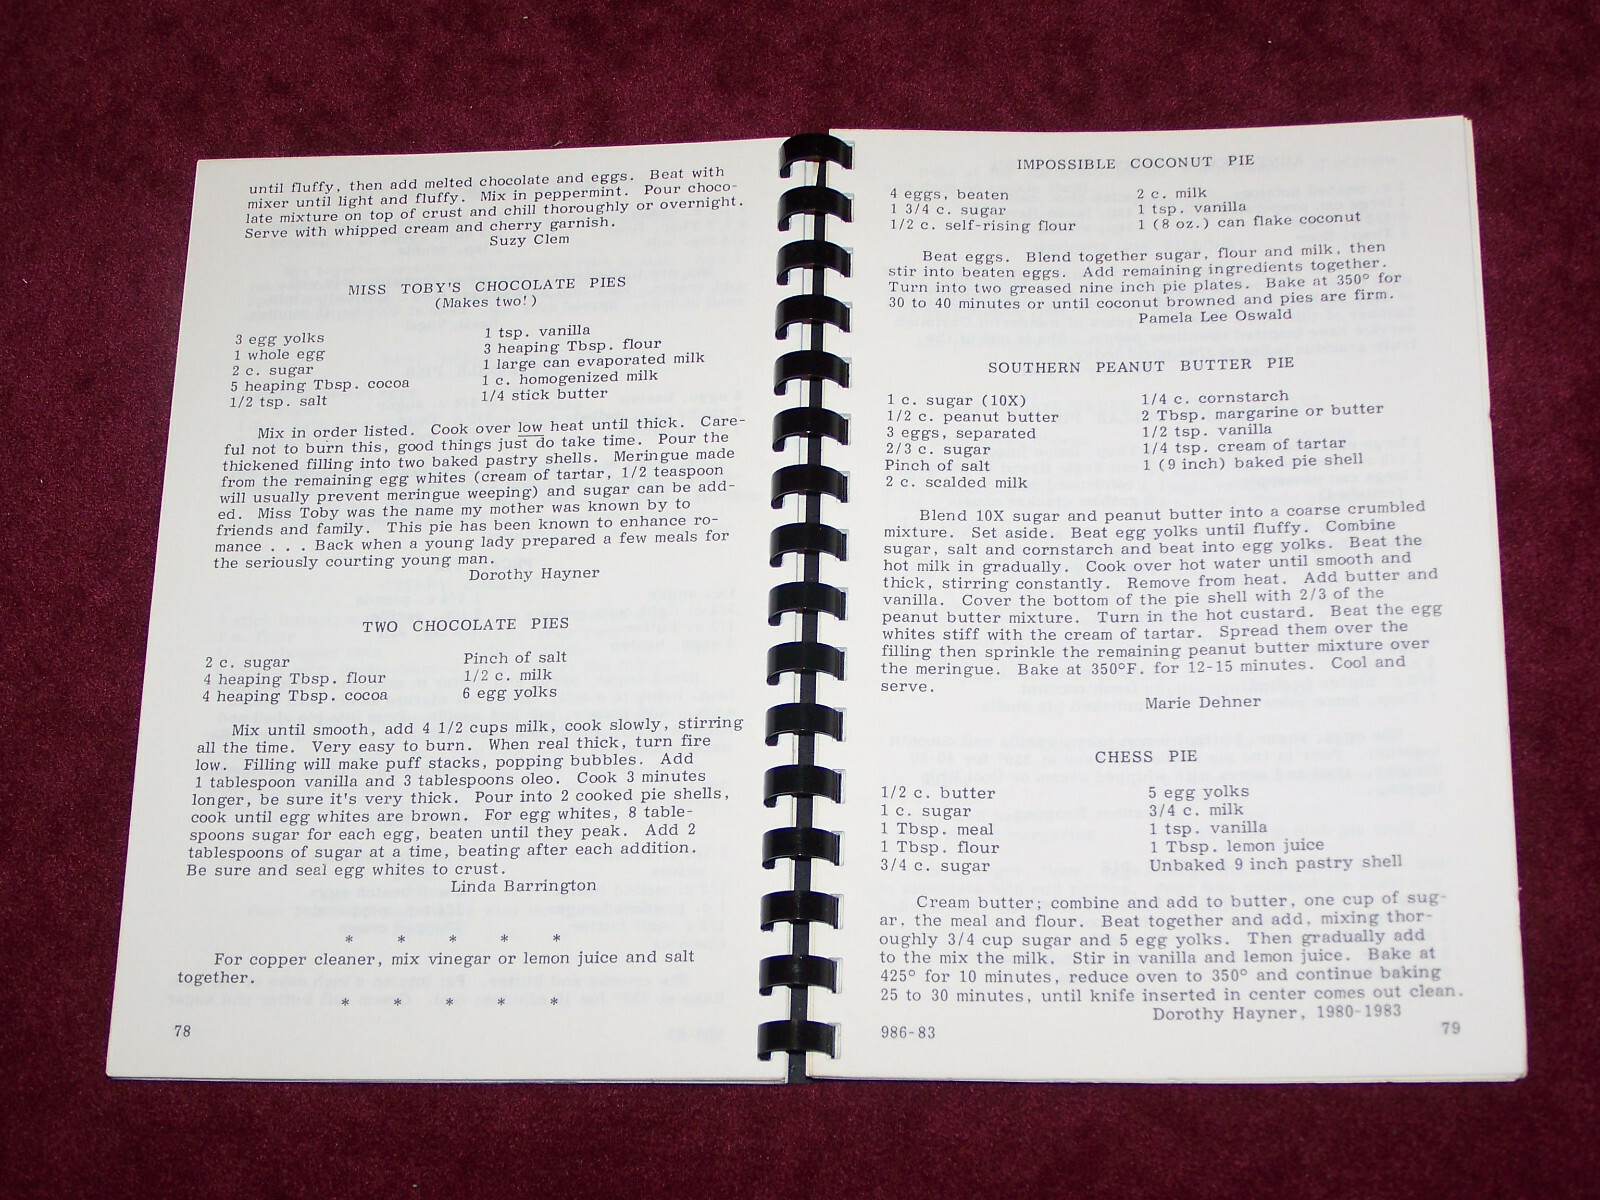 until fluffy, then add melted chocolate and eggs. Beat with
mixer until light and fluffy. Mix in peppermint. Pour choco-
late mixture on top of crust and chill thoroughly or overnight.
Serve with whipped cream and cherry garnish.
Suzy Clem
MISS TOBY'S CHOCOLATE PIES
(Makes two!)
3 egg yolks
1 whole egg
2 c. sugar
5 heaping Tbsp. cocoa
1/2 tsp. salt
1 tsp. vanilla
3 heaping Tbsp. flour
1 large can evaporated milk
1 c. homogenized milk
1/4 stick butter
Mix in order listed. Cook over low heat until thick. Care-
ful not to burn this, good things just do take time. Pour the
thickened filling into two baked pastry shells. Meringue made
from the remaining egg whites (cream of tartar, 1/2 teaspoon
will usually prevent meringue weeping) and sugar can be add-
ed. Miss Toby was the name my mother was known by to
friends and family. This pie has been known to enhance ro-
mance . . . Back when a young lady prepared a few meals for
the seriously courting young man.
Dorothy Hayner
TWO CHOCOLATE PIES
2 c. sugar
4 heaping Tbsp. flour
4 heaping Tbsp. cocoa
Pinch of salt
1/2 c. milk
6 egg yolks
Mix until smooth, add 4 1/2 cups milk, cook slowly, stirring
all the time. Very easy to burn. When real thick, turn fire
low. Filling will make puff stacks, popping bubbles. Add
1 tablespoon vanilla and 3 tablespoons oleo. Cook 3 minutes
longer, be sure it's very thick. Pour into 2 cooked pie shells,
cook until egg whites are brown. For egg whites, 8 table-
spoons sugar for each egg, beaten until they peak. Add 2
tablespoons of sugar at a time, beating after each addition.
Be sure and seal egg whites to crust.
Linda Barrington
* * * * *
For copper cleaner, mix vinegar or lemon juice and salt
together.
* * * * *
78
IMPOSSIBLE COCONUT PIE
4 eggs, beaten
1 3/4 c. sugar
1/2 c. self-rising flour
2 c. milk
1 tsp. vanilla
1 (8 oz.) can flake coconut
Beat eggs. Blend together sugar, flour and milk, then
stir into beaten eggs. Add remaining ingredients together.
Turn into two greased nine inch pie plates. Bake at 350° for
30 to 40 minutes or until coconut browned and pies are firm.
Pamela Lee Oswald
SOUTHERN PEANUT BUTTER PIE
1 c. sugar (10X)
1/2 c. peanut butter
3 eggs, separated
2/3 c. sugar
Pinch of salt
2 c. scalded milk
1/4 c. cornstarch
2 Tbsp. margarine or butter
1/2 tsp. vanilla
1/4 tsp. cream of tartar
1 (9 inch) baked pie shell
Blend 10X sugar and peanut butter into a coarse crumbled
mixture. Set aside. Beat egg yolks until fluffy. Combine
sugar, salt and cornstarch and beat into egg yolks. Beat the
hot milk in gradually. Cook over hot water until smooth and
thick, stirring constantly. Remove from heat. Add butter and
vanilla. Cover the bottom of the pie shell with 2/3 of the
peanut butter mixture. Turn in the hot custard. Beat the egg
whites stiff with the cream of tartar. Spread them over the
filling then sprinkle the remaining peanut butter mixture over
the meringue. Bake at 350°F. for 12-15 minutes. Cool and
serve.
Marie Dehner
CHESS PIE
1/2 c. butter
1 c. sugar
1 Tbsp. meal
1 Tbsp. flour
3/4 c. sugar
5 egg yolks
3/4 c. milk
1 tsp. vanilla
1 Tbsp. lemon juice
Unbaked 9 inch pastry shell
Cream butter; combine and add to butter, one cup of sug-
ar, the meal and flour. Beat together and add, mixing thor-
oughly 3/4 cup sugar and 5 egg yolks. Then gradually add
to the mix the milk. Stir in vanilla and lemon juice. Bake at
425° for 10 minutes, reduce oven to 350° and continue baking
25 to 30 minutes, until knife inserted in center comes out clean.
Dorothy Hayner, 1980-1983
986-83
79